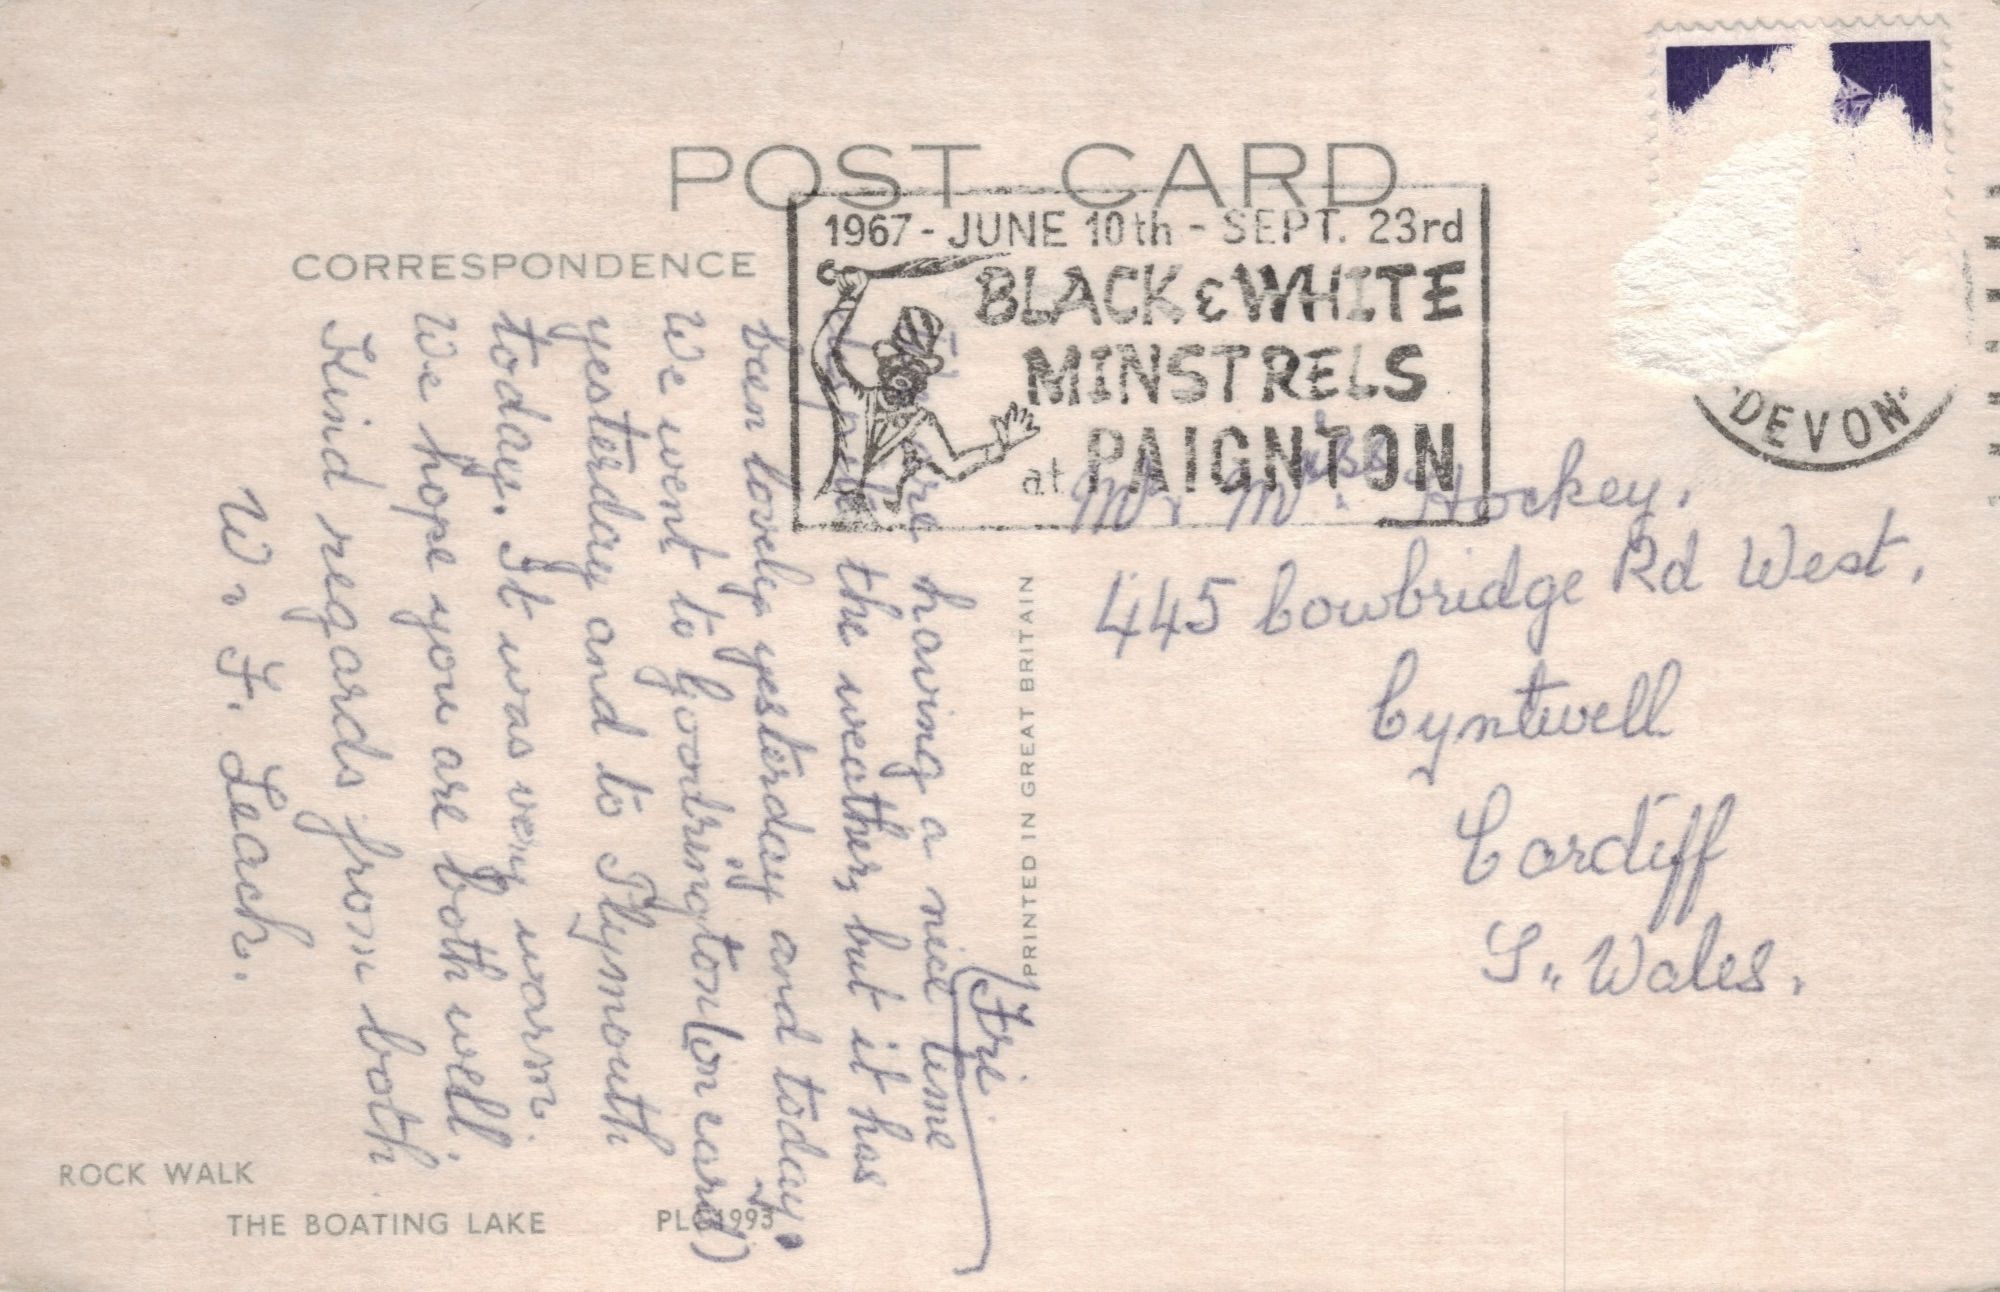 POST CARD
1967 - JUNE 10th - SEPT. 23rd
BLACK & WHITE
MINSTRELS
at PAIGNTON
DEVON
CORRESPONDENCE
Fri
We are having a nice time
despite the weather, but it has
been lovely yesterday and today.
We went to Goodrington (on card)
yesterday and to Plymouth
today. It was very warm.
We hope you are both well.
Kind regards from both
W & F. Leach.
PRINTED IN GREAT BRITAIN
Mr & Miss Hockey.
445 Cowbridge Rd West,
Cyntwell
Cardiff
S. Wales.
ROCK WALK
THE BOATING LAKE